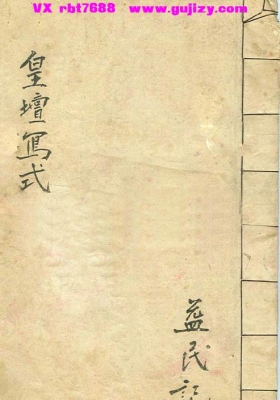 VX rbt7688 www.gujizy.com
皇壇寫式
益民記